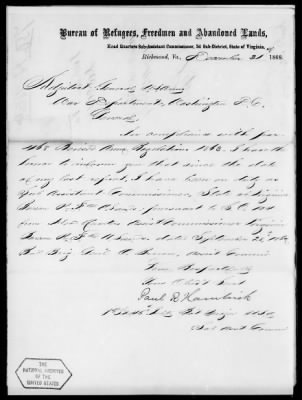 Bureau of Refugees, Freedmen and Abandoned Lands,
Head Quarters Sub-Assistant Commissioner, 3d Sub-District, State of Virginia,
Richmond, Va., December 31 1868.
Adjutant General U.S. Army
War Department, Washington D.C.
General
In compliance with par
468 Revised Army Regulations 1863, I have the
honor to inform you that since the date
of my last report, I have been on duty as
Sub Assistant Commissioner, State of Virginia
Bureau R. F. &c. pursuant to S.O.
from Head Quarters Asst Commissioner Virginia
Bureau R. F. dated September 1868
Brig Genl O. Brown, Asst Commr
Very Respectfully
Your Obdt Servt
Paul R. Hambrick
Sub Asst Commr
THE
NATIONAL ARCHIVES
OF THE
UNITED STATES